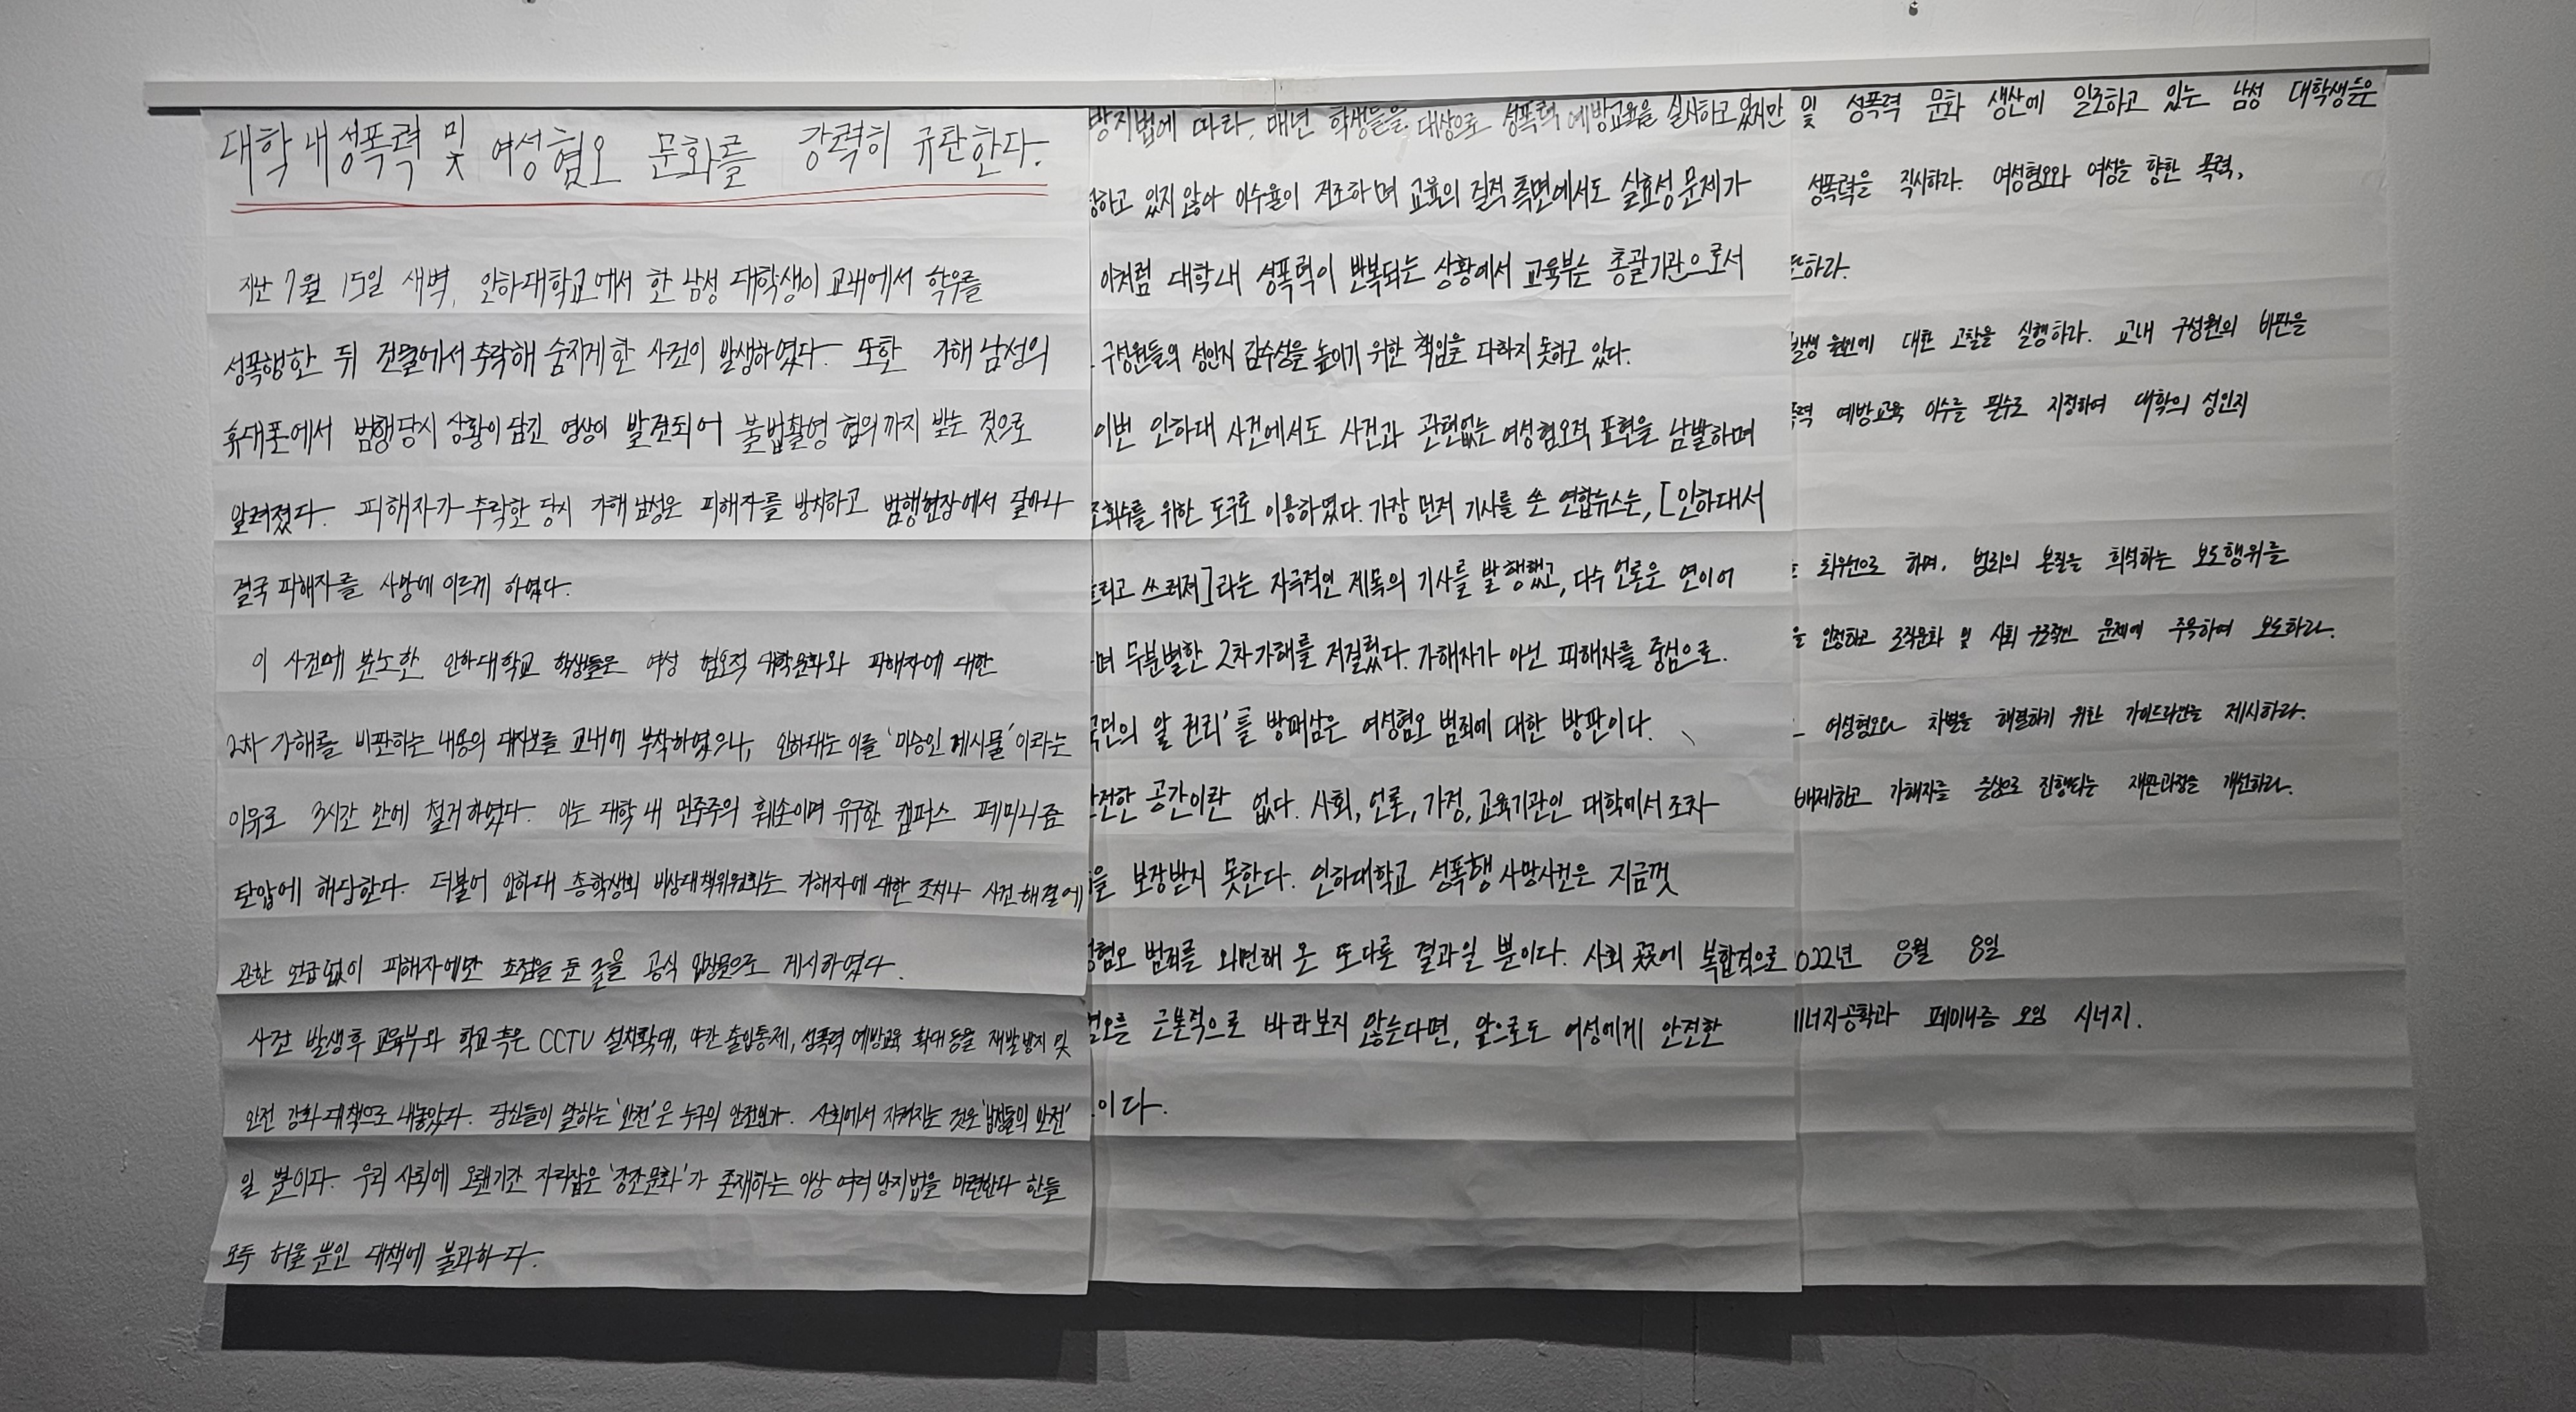 대학 내 성폭력 및 여성혐오 문화를 강력히 규탄한다.
지난 7월 15일 새벽, 인하대학교에서 한 남성 대학생이 교내에서 학우를
성폭행한 뒤 건물에서 추락해 숨지게 한 사건이 발생하였다. 또한 가해 남성의
휴대폰에서 범행당시 상황이 담긴 영상이 발견되어 불법촬영 혐의까지 받는 것으로
알려졌다. 피해자가 추락한 당시 가해 남성은 피해자를 방치하고 범행현장에서 달아나
결국 피해자를 사망에 이르게 하였다.
이 사건에 분노한 인하대학교 학생들은 여성 혐오적 대학문화와 피해자에 대한
2차 가해를 비판하는 내용의 대자보를 교내에 부착하였으나, 인하대는 이를 '미승인 게시물'이라는
이유로 3시간 안에 철거하였다. 이는 대학 내 민주주의 훼손이며 유구한 캠퍼스 페미니즘
탄압에 해당한다. 더불어 인하대 총학생회 비상대책위원회는 가해자에 대한 조치나 사건 해결에
관한 언급 없이 피해자에만 초점을 둔 글을 공식 입장문으로 게시하였다.
사건 발생 후 교육부와 학교 측은 CCTV 설치확대, 야간 출입통제, 성폭력 예방교육 확대 등을 재발방지 및
안전 강화 대책으로 내놓았다. 당신들이 말하는 '안전'은 누구의 안전인가. 사회에서 지켜지는 것은 '남성들의 안전'
일 뿐이다. 우리 사회에 오랜기간 자리잡은 '강간문화'가 존재하는 이상 여러 방지법을 마련한다 한들
모두 허울 뿐인 대책에 불과하다.
방지법에 따라, 매년 학생들을 대상으로 성폭력 예방교육을 실시하고 있지만
하고 있지 않아 이수율이 저조하며 교육의 질적 측면에서도 실효성 문제가
이처럼 대학 내 성폭력이 반복되는 상황에서 교육부는 총괄기관으로서
구성원들의 성인지 감수성을 높이기 위한 책임을 다하지 못하고 있다.
이번 인하대 사건에서도 사건과 관련없는 여성혐오적 표현을 남발하며
조회수를 위한 도구로 이용하였다. 가장 먼저 기사를 쓴 연합뉴스는, [인하대서
흘리고 쓰러져]라는 자극적인 제목의 기사를 발행했고, 다수 언론은 연이어
며 무분별한 2차가해를 저질렀다. 가해자가 아닌 피해자를 중심으로
국민의 알 권리'를 방패삼은 여성혐오 범죄에 대한 방관이다.
안전한 공간이란 없다. 사회, 언론, 가정, 교육기관인 대학에서조차
을 보장받지 못한다. 인하대학교 성폭행 사망사건은 지금껏
성혐오 범죄를 외면해 온 또다른 결과일 뿐이다. 사회 곳곳에 복합적으로
혐오를 근본적으로 바라보지 않는다면, 앞으로도 여성에게 안전한
이다.
및 성폭력 문화 생산에 일조하고 있는 남성 대학생들은
성폭력을 직시하라. 여성혐오와 여성을 향한 폭력,
하라.
발생 원인에 대한 고찰을 실행하라. 교내 구성원의 비판을
폭력 예방교육 이수를 필수로 지정하여 대학의 성인지
최우선으로 하며, 범죄의 본질을 희석하는 보도행위를
을 인정하고 조직문화 및 사회 구조적인 문제에 주목하여 보도하라.
여성혐오와 차별을 해결하기 위한 가이드라인을 제시하라.
배제하고 가해자를 중심으로 진행되는 재판과정을 개선하라.
022년 8월 8일
에너지공학과 페미니즘 모임 시너지.